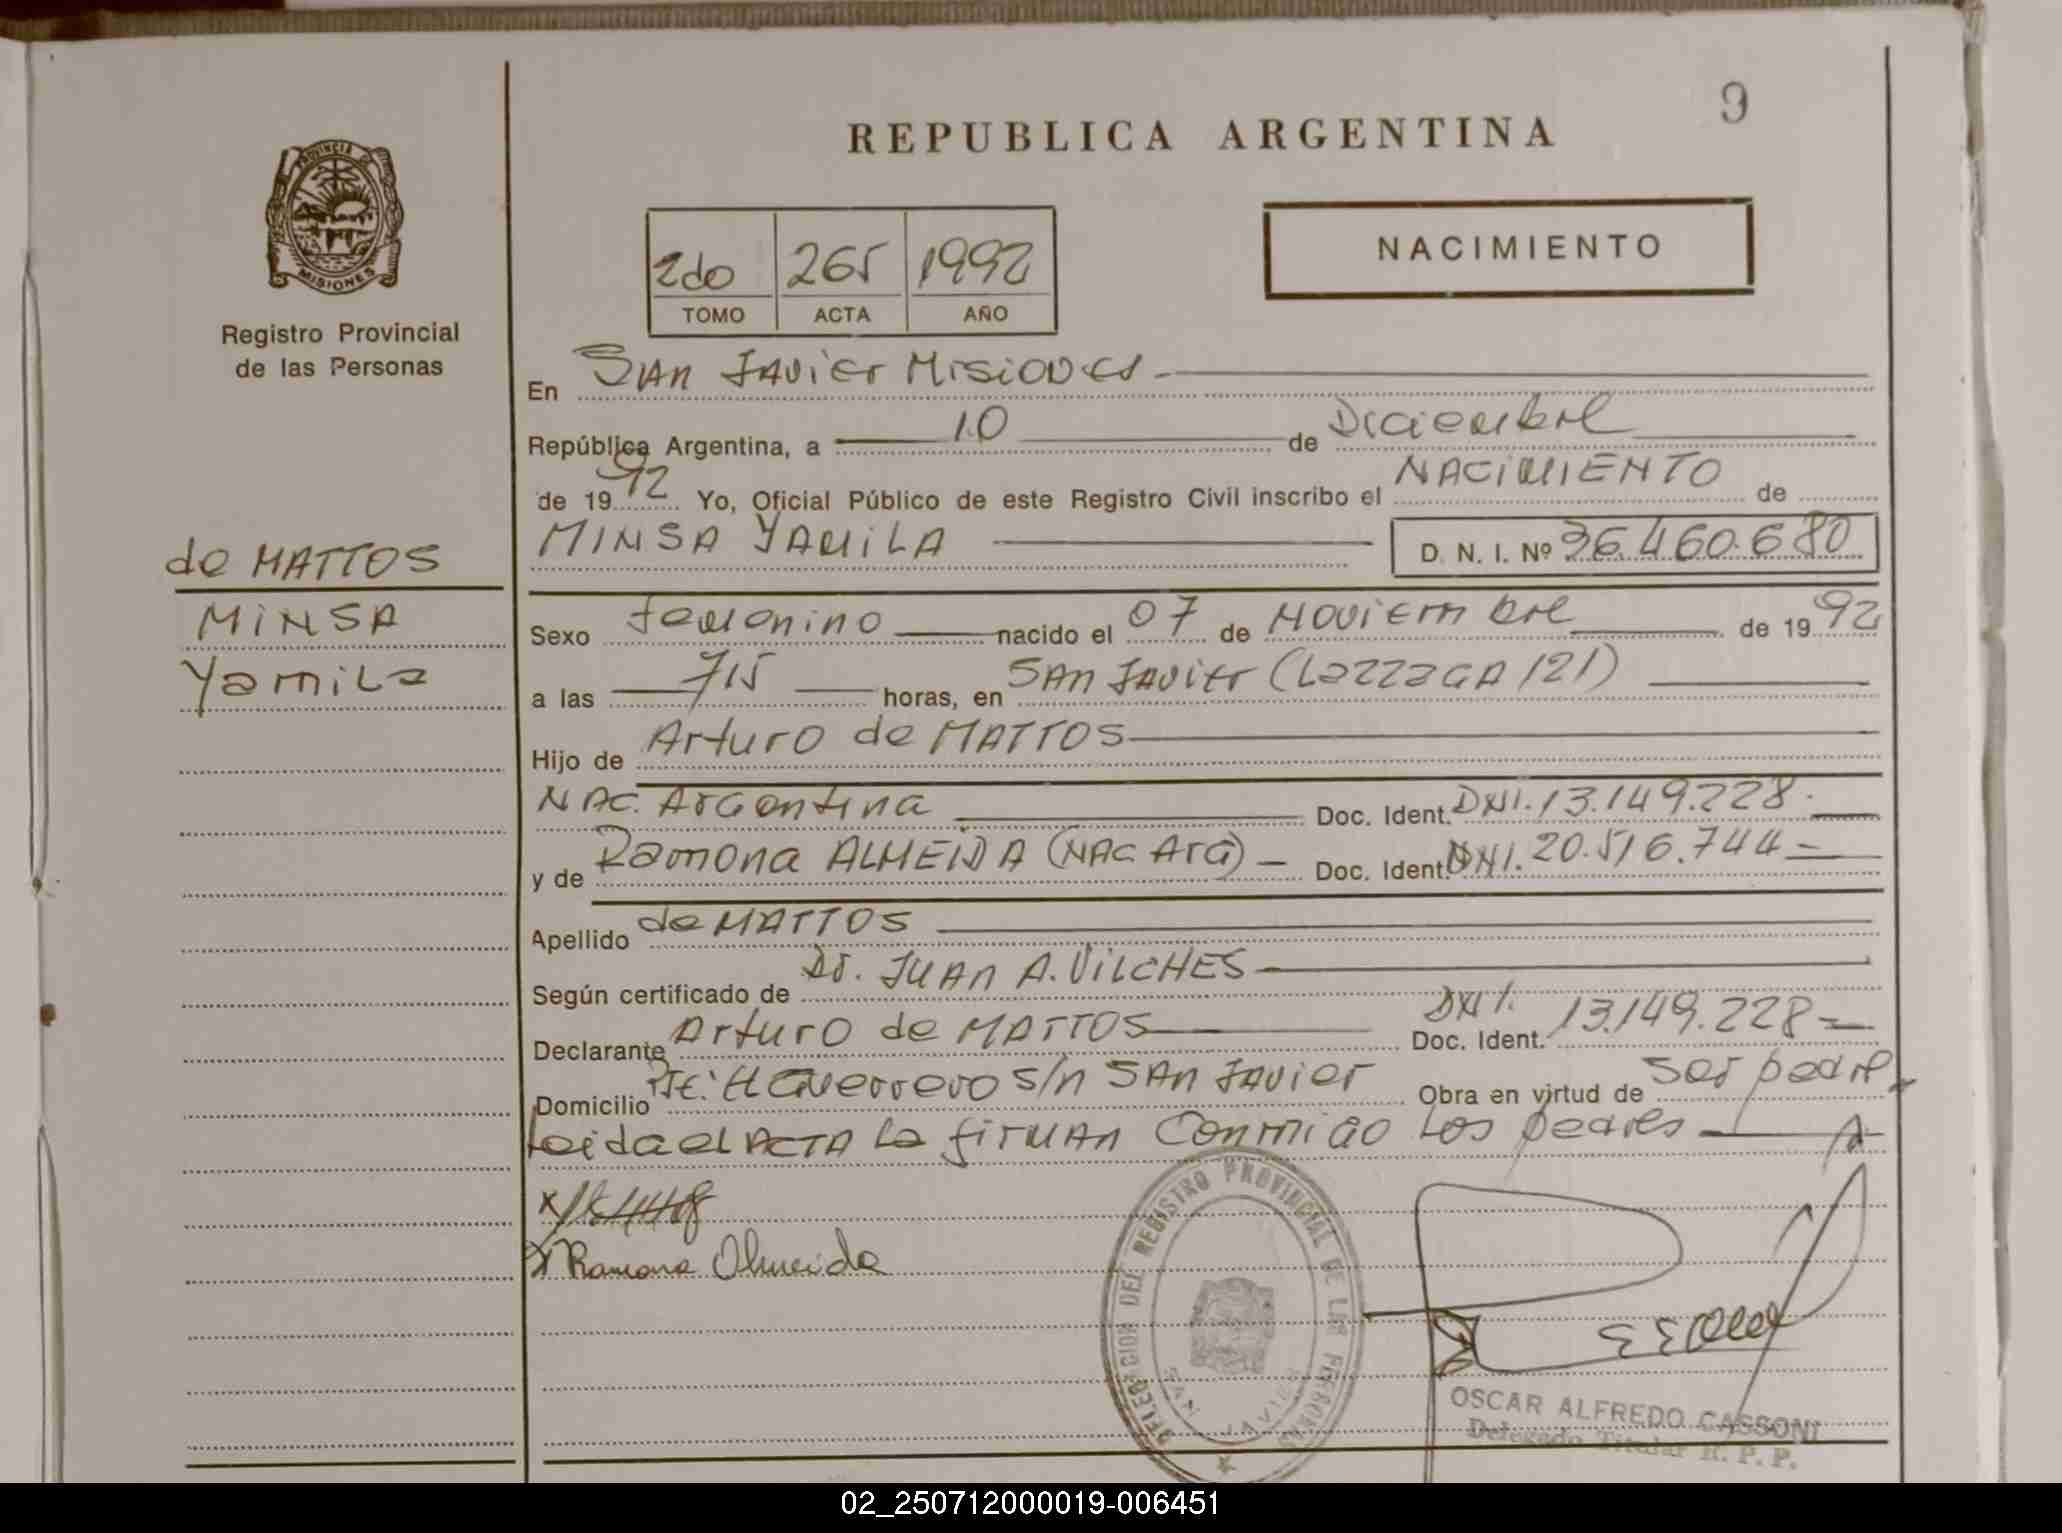 9
REPUBLICA ARGENTINA
PROVINCIA DE
MISIONES
Registro Provincial
de las Personas
2do 265 1992
TOMO ACTA AÑO
NACIMIENTO
En San Javier Misiones
República Argentina, a 10 de Diciembre
de 1992 Yo, Oficial Público de este Registro Civil inscribo el NACIMIENTO de
MINSA YAMILA D. N. I. Nº 36.460.680
de MATTOS
MINSA
Yamila
Sexo femenino nacido el 07 de Noviembre de 1992
a las 715 horas, en San Javier (Lazzaga 121)
Hijo de Arturo de MATTOS
NAC. Argentina Doc. Ident. DNI. 13.149.228.
y de Ramona ALMEIDA (NAC Arg) Doc. Ident. DNI. 20.516.744
Apellido de MATTOS
Según certificado de Dr. JUAN A. VILCHES
Declarante Arturo de MATTOS Doc. Ident. DNI. 13.149.228
Domicilio Guerrero s/n San Javier Obra en virtud de ser padre
Leida el ACTA la firman conmigo los padres
Ramona Almeida
DELEGACION DEL REGISTRO PROVINCIAL DE LAS PERSONAS
SAN JAVIER
OSCAR ALFREDO CASSONI
Delegado Titular R. P. P.
02_250712000019-006451